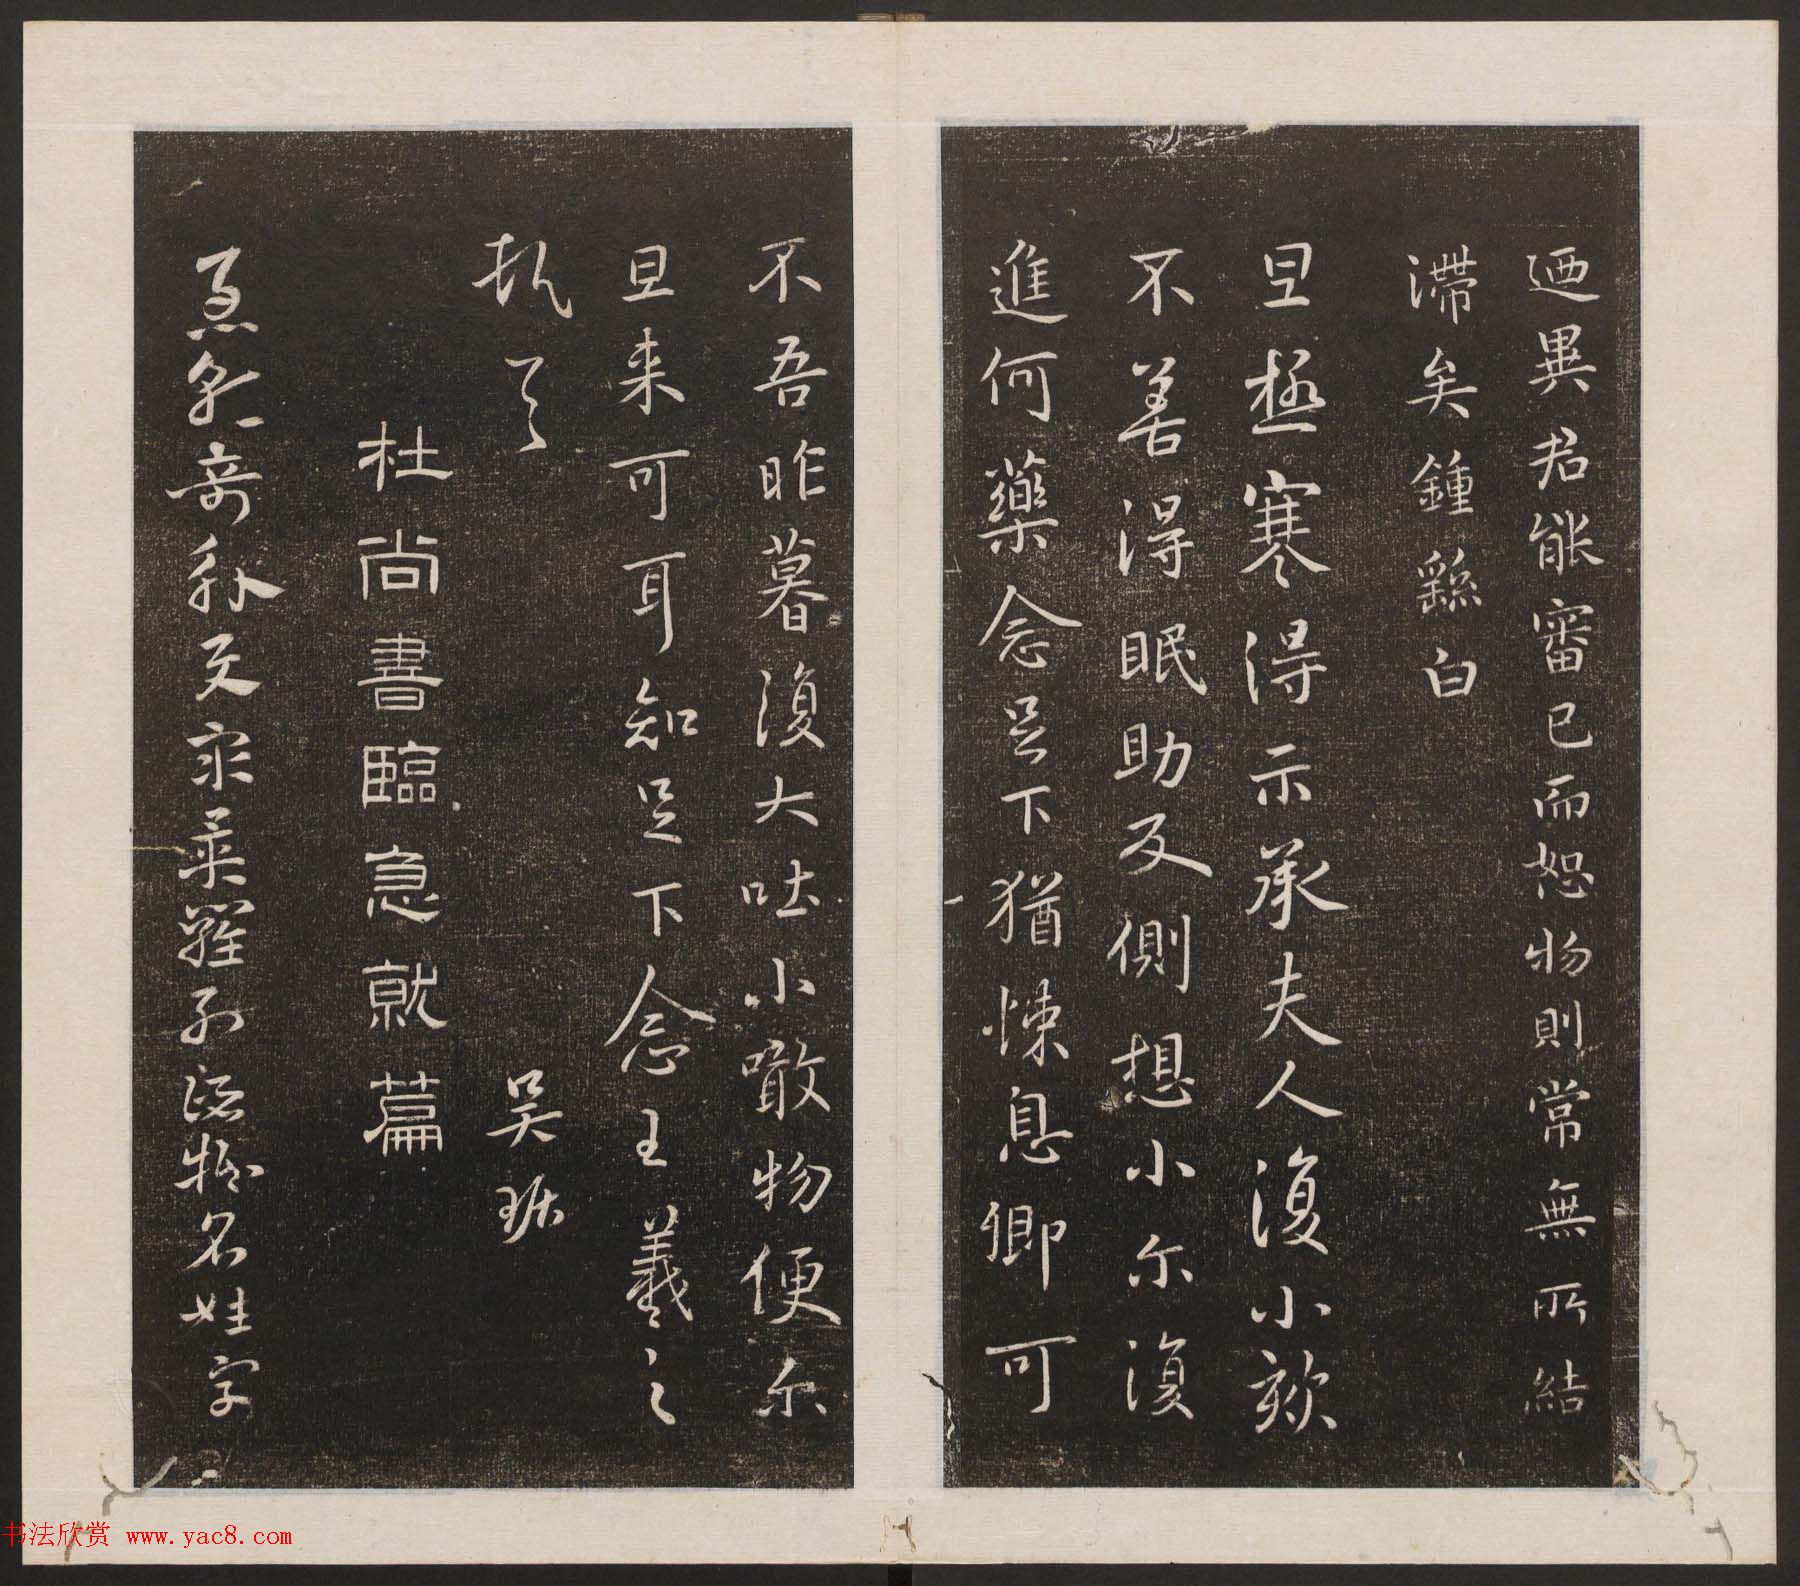 迺異君能審已而恕物則常無所結
滯矣鍾繇白
旦極寒得示承夫人復小欬
不善得眠助反側想小尔復
進何藥念足下猶悚息卿可
不吾昨暮復大吐小噉物便尔
旦来可耳知足下念王羲之
頓首
杜尚書臨急就篇
急就奇觚與衆異羅列諸物名姓字
书法欣赏 www.yac8.com